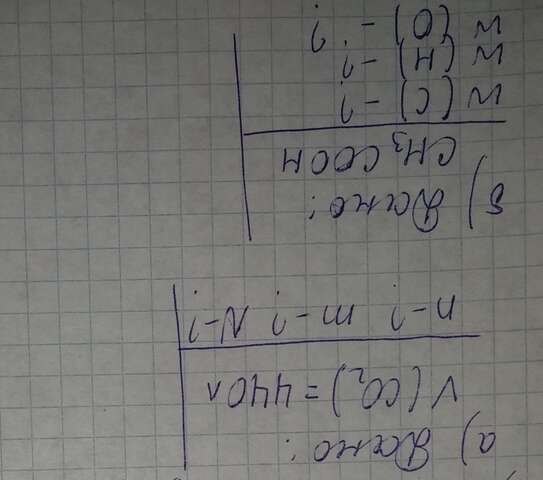 а) Дано:
V(CO₂) = 440л
n-? m-? N-?
б) Дано:
CH₃COOH
w(C) -?
w(H) -?
w(O) - ?